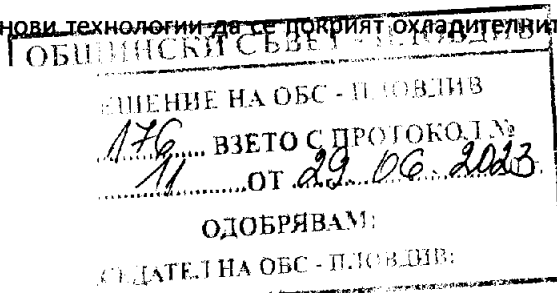 нови технологии да се покрият охладителнит
ОБЩИНСКИ СЪВЕТ - ПЛОВДИВ
ЕШЕНИЕ НА ОБС - ПЛОВДИВ
176 ВЗЕТО С ПРОТОКОЛ №
11 ОТ 29.06.2023
ОДОБРЯВАМ:
СЕДАТЕЛ НА ОБС - ПЛОВДИВ: